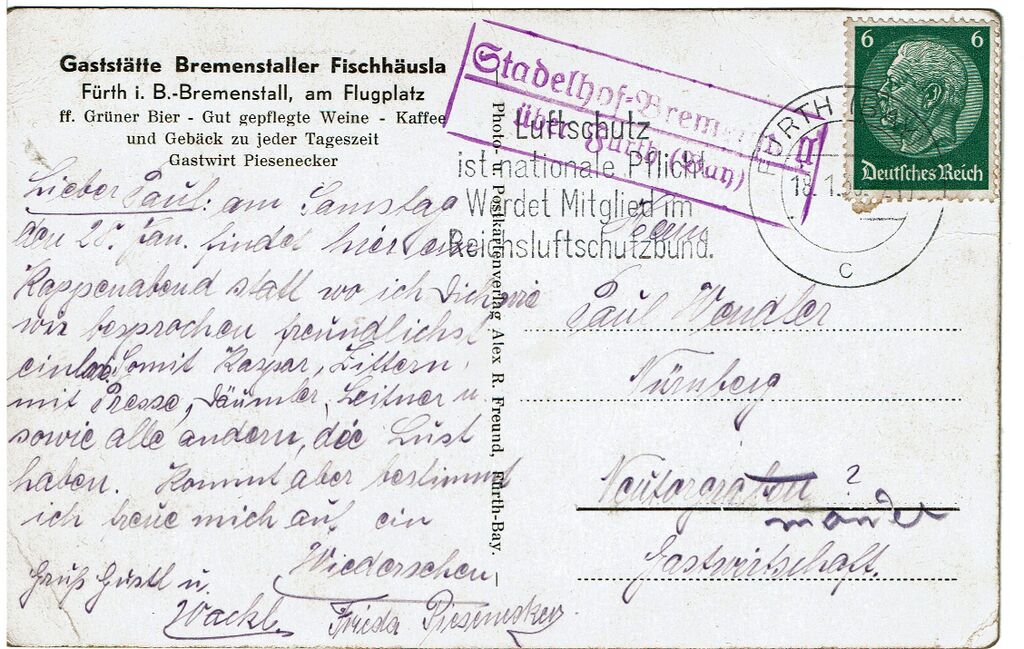 Gaststätte Bremenstaller Fischhäusla
Fürth i. B.-Bremenstall, am Flugplatz
ff. Grüner Bier - Gut gepflegte Weine - Kaffee
und Gebäck zu jeder Tageszeit
Gastwirt Piesenecker
Lieber Paul: am Samstag
den 28. Jan. findet hier ein
Kappenabend statt wo ich Dich wie
wir besprochen freundlichst
einlade. Somit Kaspar, Zittern,
mit Presse, Däumler, Leitner u.
sowie alle andern, die Lust
haben. Kommt aber bestimmt
ich freue mich auf ein
Wiedersehen
Gruß Gustl u.
Wackl. Frieda Piesenecker
Photo- u. Postkartenverlag Alex R. Freund, Fürth-Bay.
Stadelhof-Bremenstall
über Fürth (Bay)
Luftschutz
ist nationale Pflicht
Werdet Mitglied im
Reichsluftschutzbund.
FÜRTH
18.1.
c
6 6
Deutsches Reich
Herrn
Paul Wendler
Nürnberg
Neutorgraben ?
Gastwirtschaft.